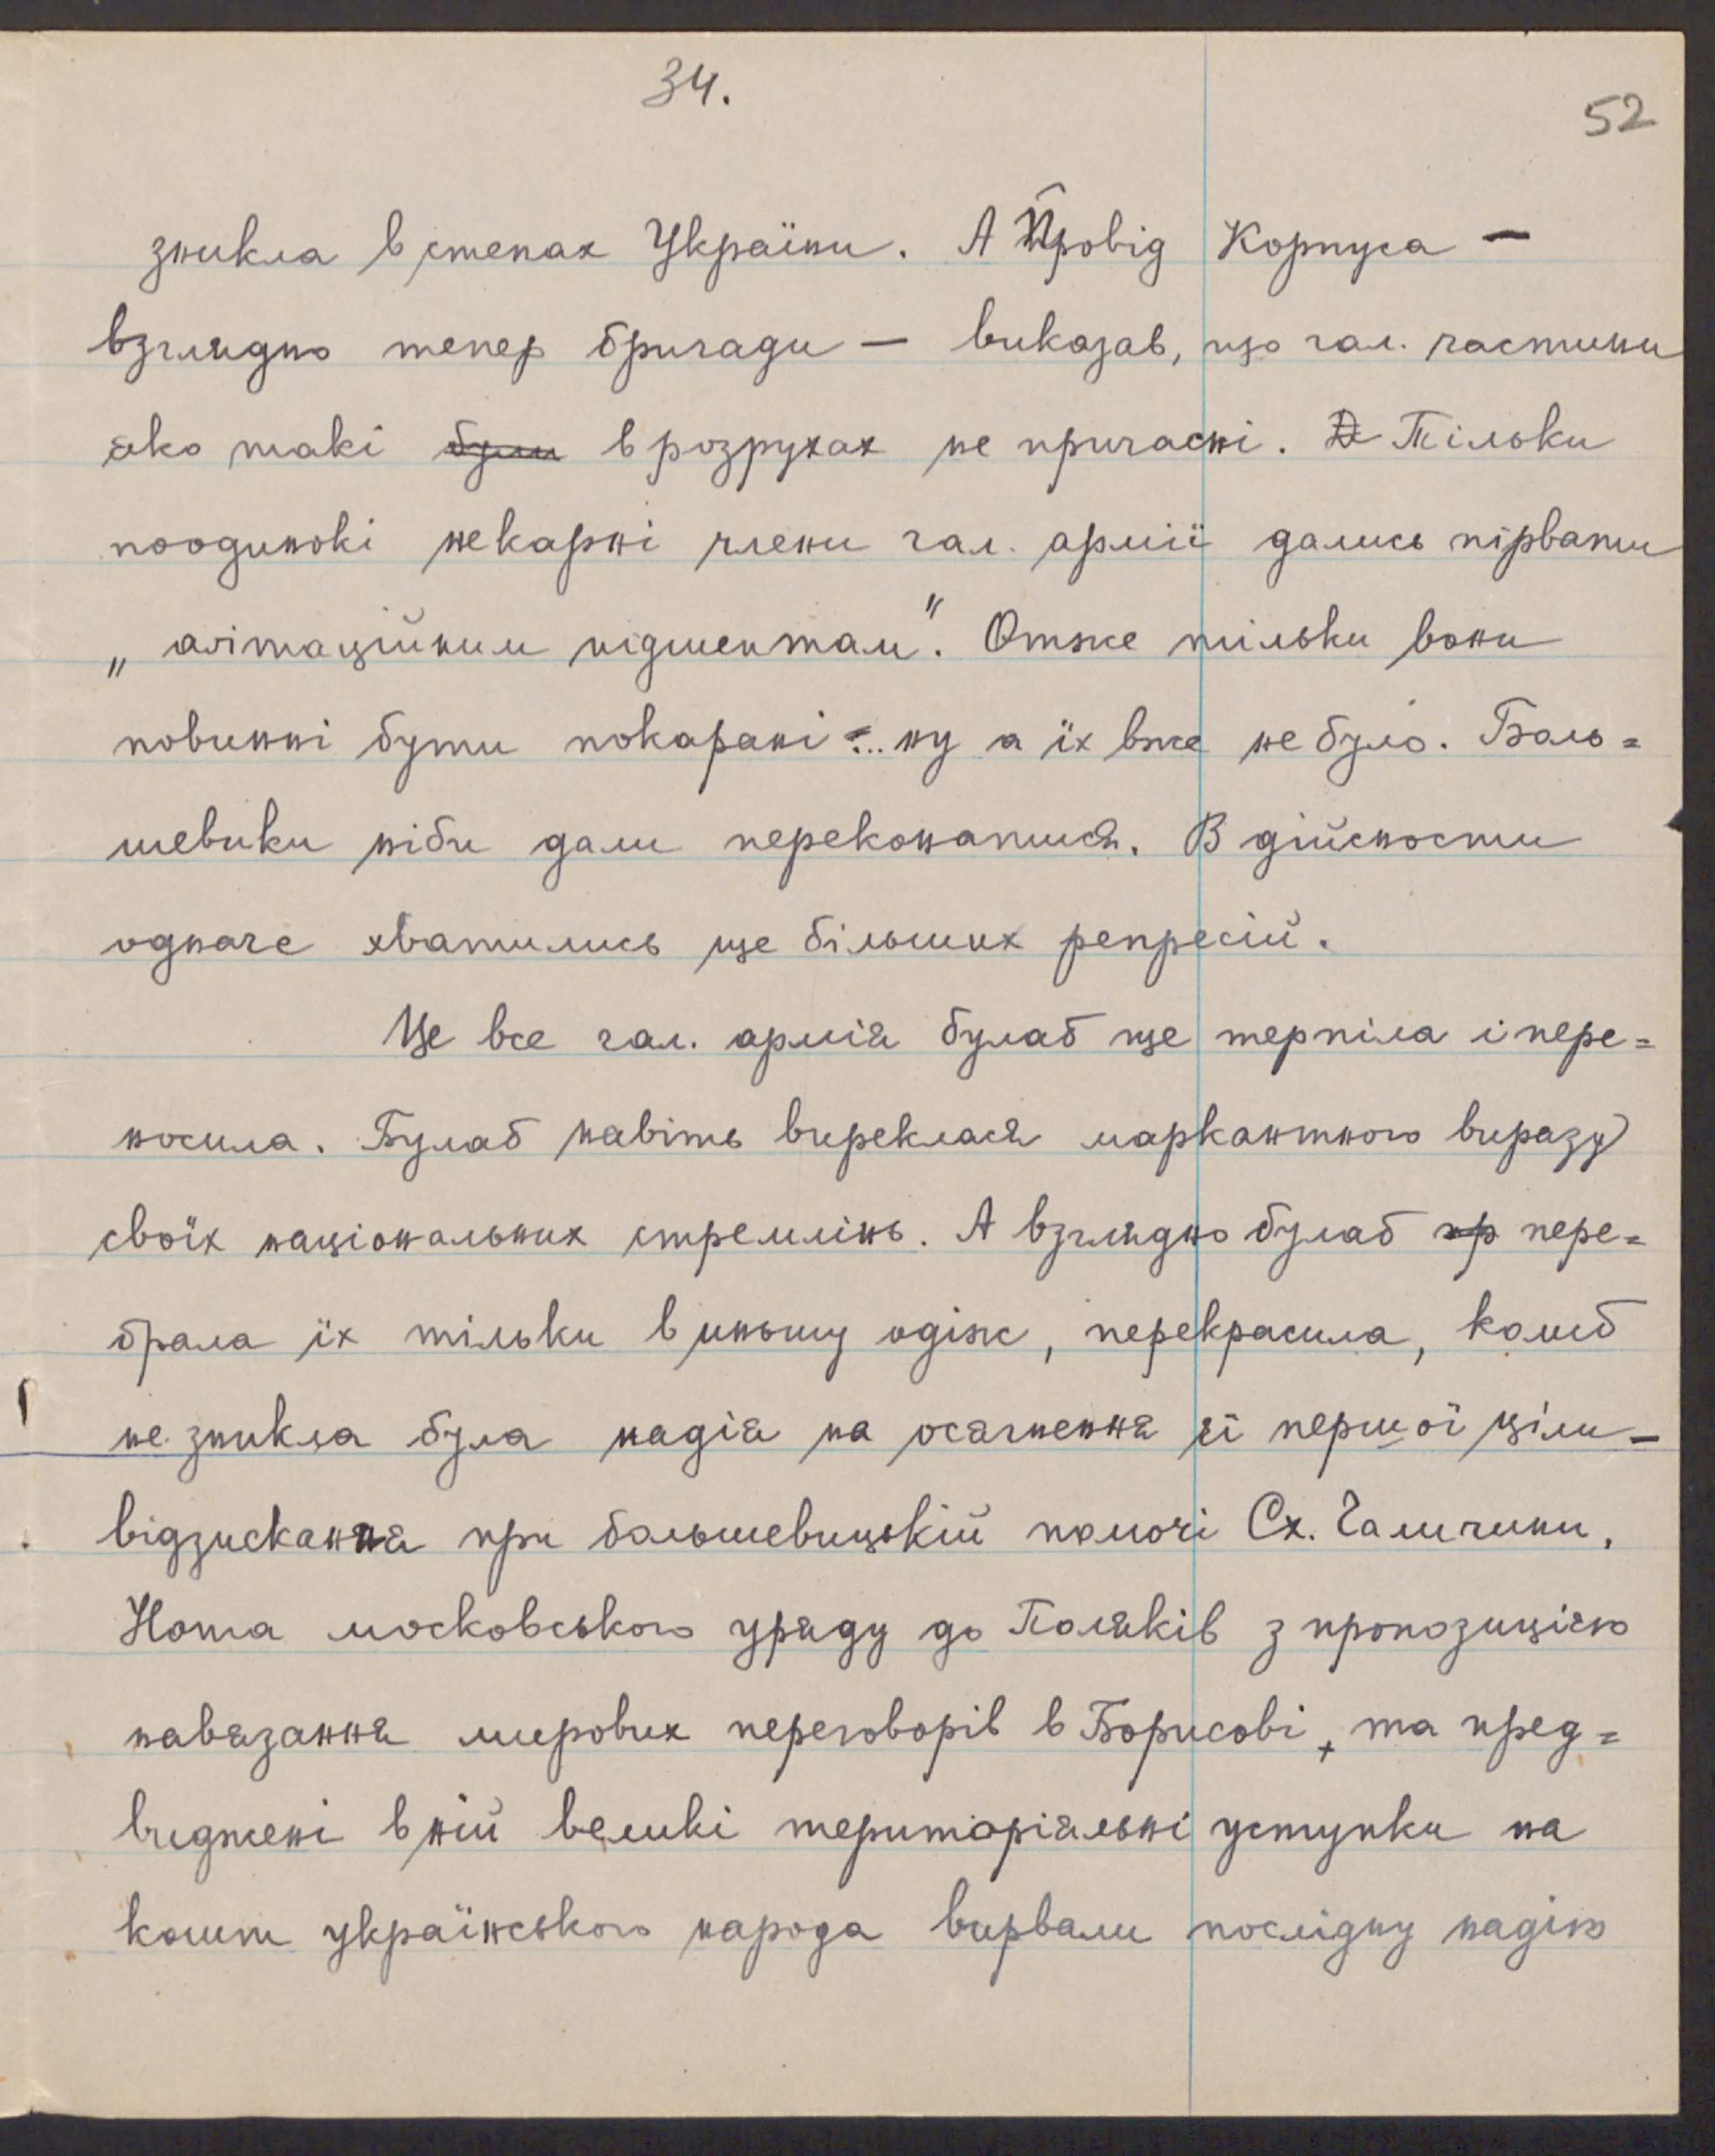 34.
52
зникла в степах України. А Провід Корпуса —
взглядно тепер бригади — виказав, що гал. частини
яко такі були в розрухах не причасні. Тільки
поодинокі некарні члени гал. армії дались пірвати
„агітаційним підшептам". Отже тільки вони
повинні бути покарані ... ну а їх вже не було. Боль=
шевики ніби дали переконатися. В дійсности
одначе хватились ще більших репресій.
Це все гал. армія булаб ще терпіла і пере=
носила. Булаб навіть виреклася маркантного виразу
своїх національних стремлінь. А взглядно булаб пр пере=
брала їх тільки в иньшу одіж, перекрасила, колиб
не зникла була надія на осягнення її першої ціли —
відзискання при большевицькій помочі Сх. Галичини.
Нота московського уряду до Поляків з пропозицією
навязання мирових переговорів в Борисові, та пред=
виджені в ній великі територіяльні уступки на
кошт українського народа вирвали послідну надію